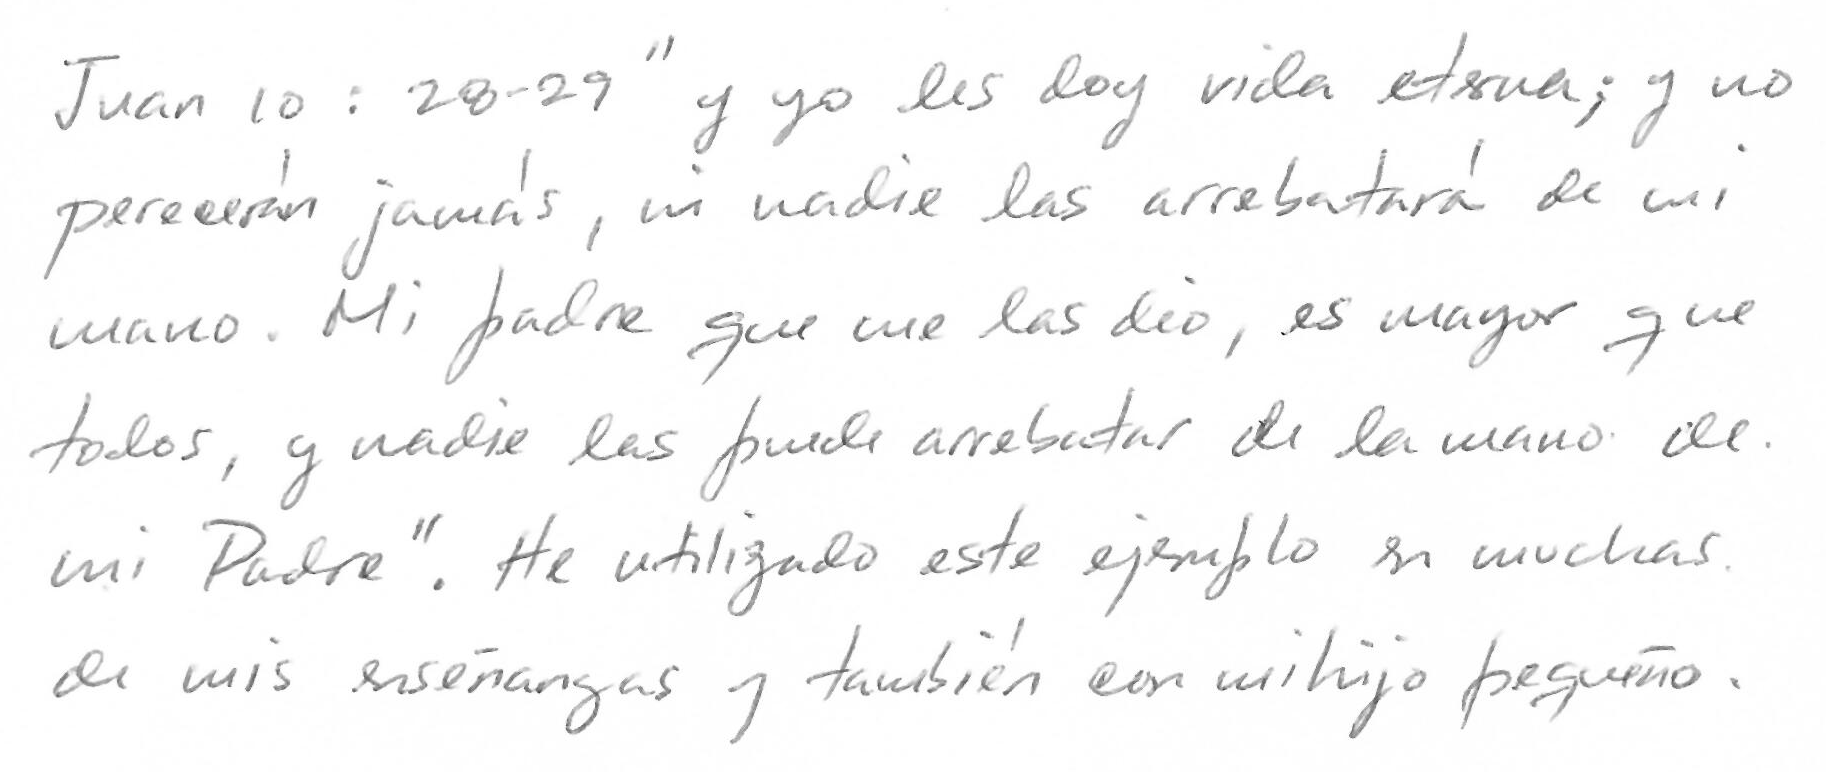 Juan 10 : 28-29 " y yo les doy vida eterna; y no
perecerán jamás, ni nadie las arrebatará de mi
mano. Mi padre que me las dio, es mayor que
todos, y nadie las puede arrebatar de la mano de
mi Padre". He utilizado este ejemplo en muchas
de mis enseñanzas y también con mi hijo pequeño.